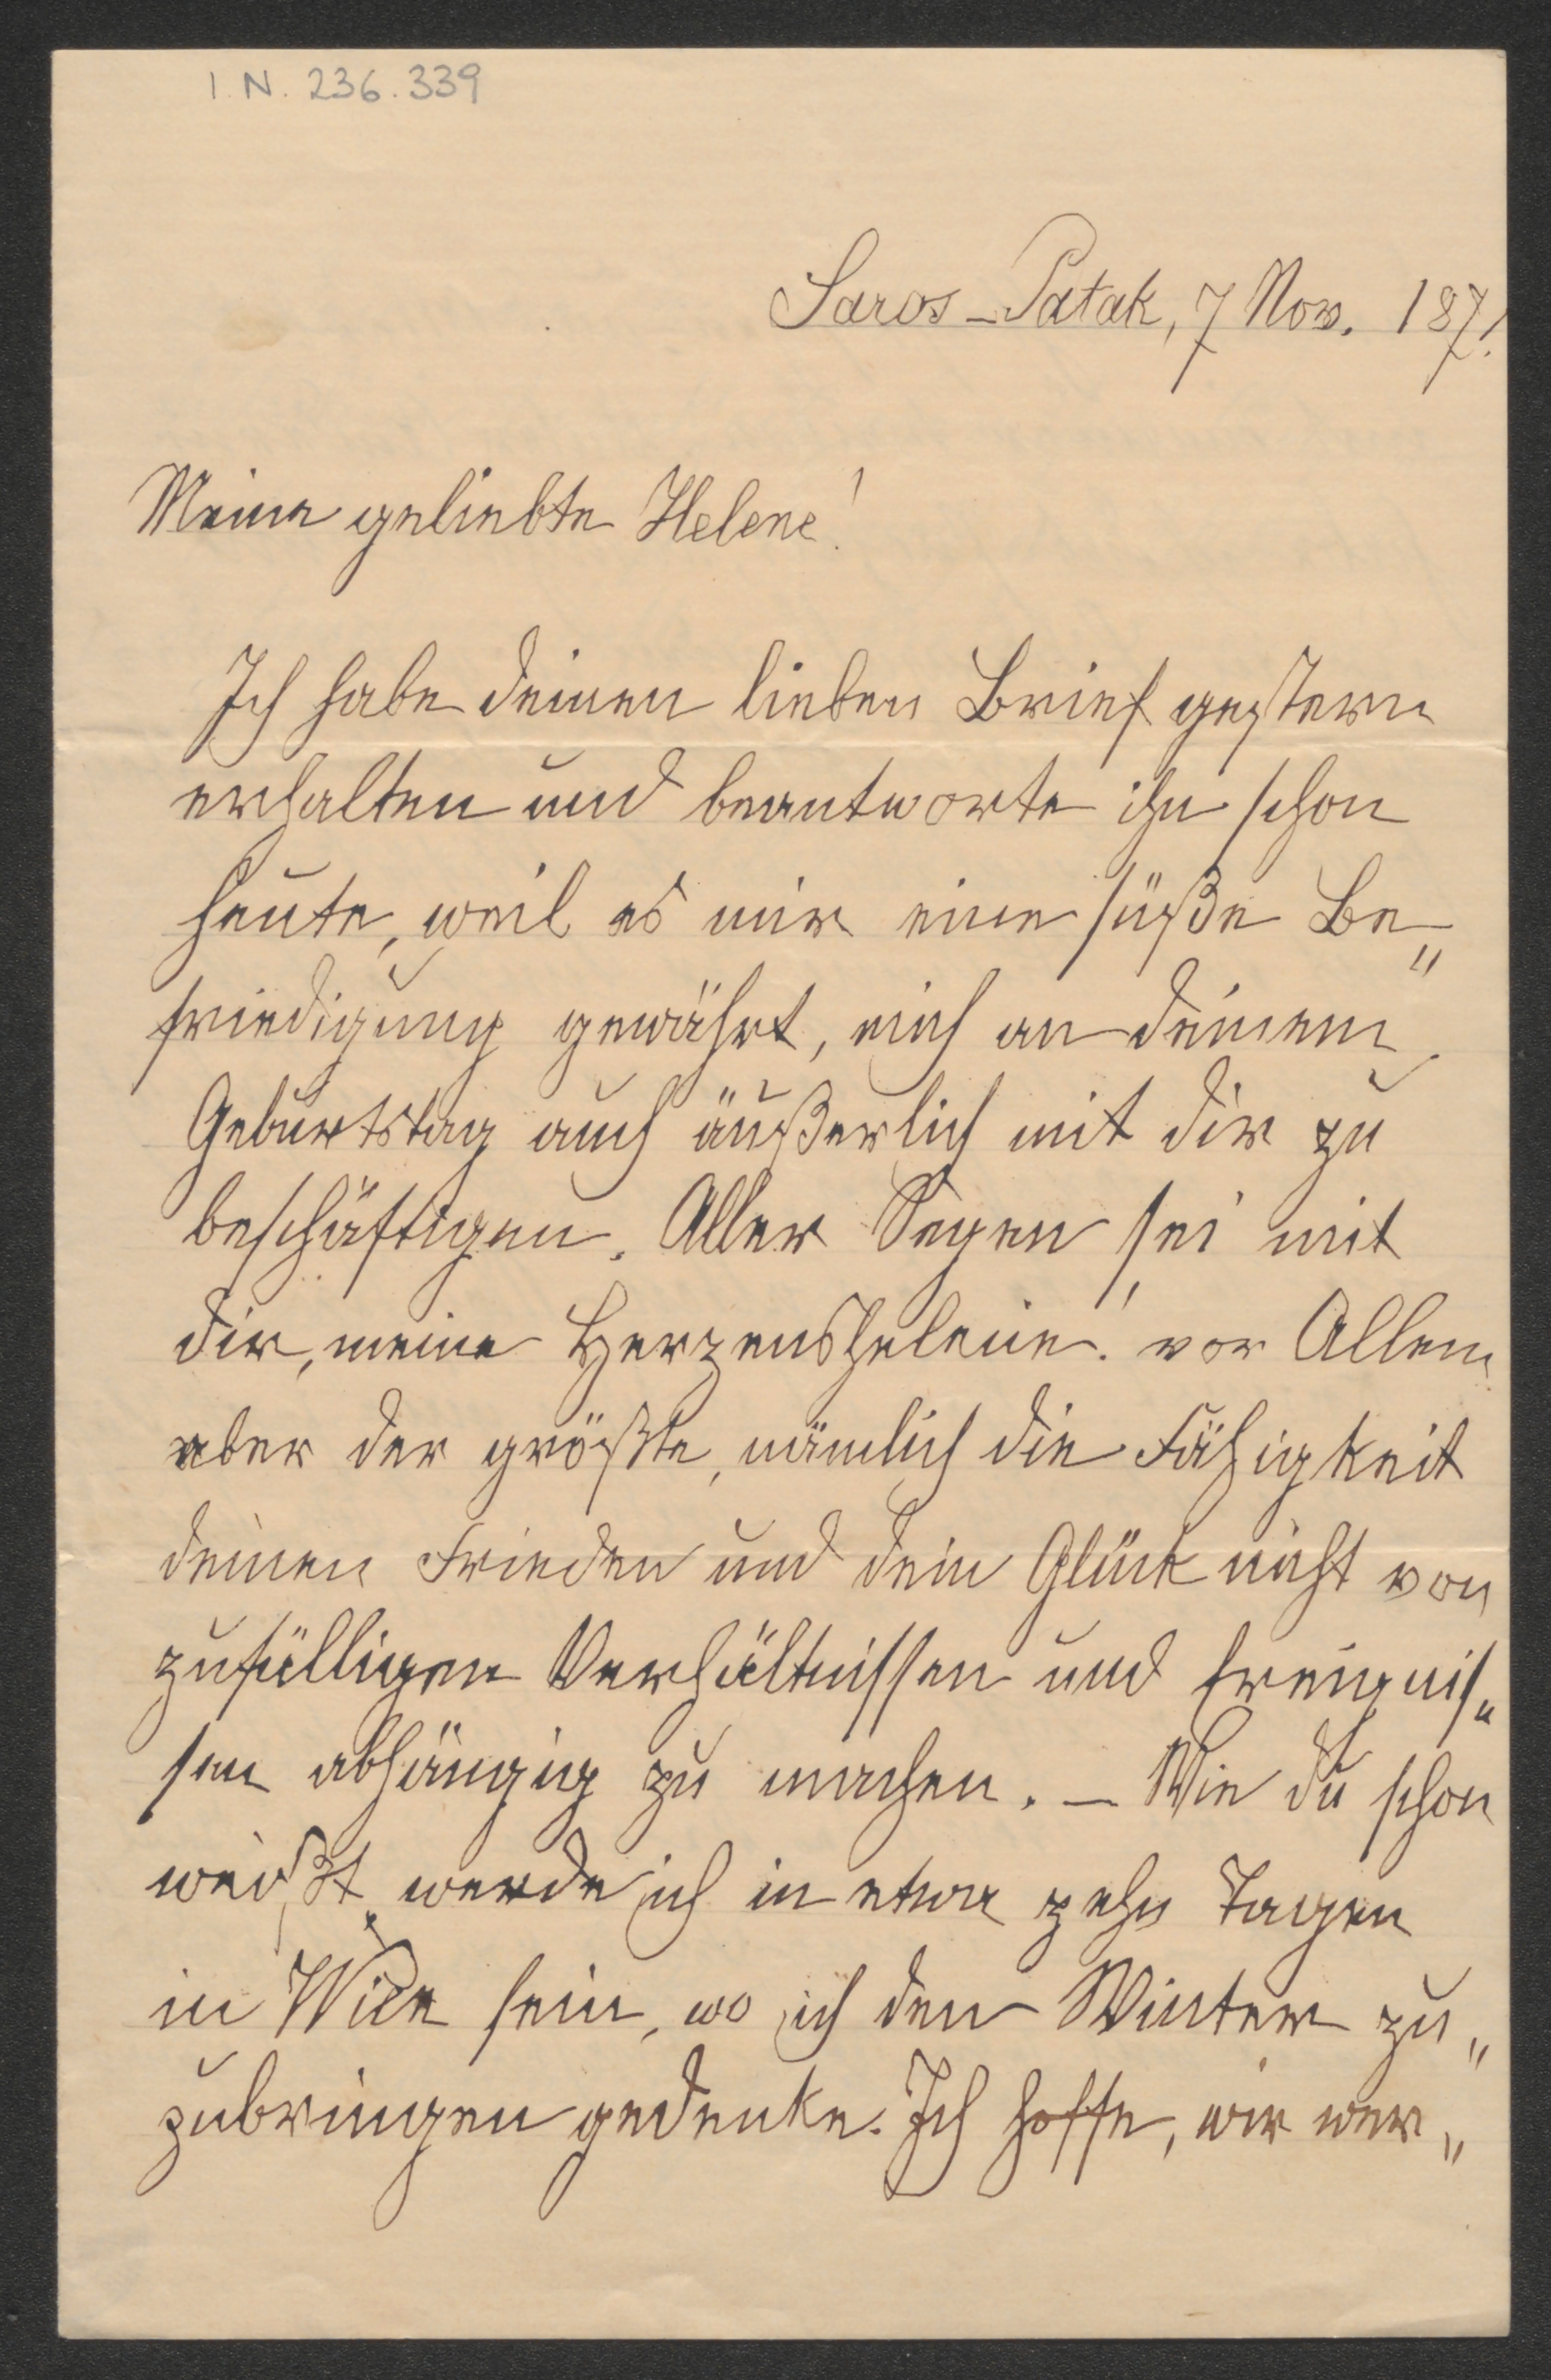 I.N. 236.339
Saros-Patak, 7 Nov. 187!
Meine geliebte Helene!
Ich habe deinen lieben Brief gestern
erhalten und beantworte ihn schon
heute, weil es mir eine süße Be„
friedigung gewährt, mich an deinem
Geburtstag auch äußerlich mit dir zu
beschäftigen. Aller Segen sei mit
dir, meine Herzenshelene! vor Allem
aber der größte, nämlich die Fähigkeit
deinen Frieden und dein Glück nicht von
zufälligen Verhältnissen und Ereignis„
sen abhängig zu machen. – Wie du schon
weißt, werde ich in etwa zehn Tagen
in Wien sein, wo ich den Winter zu„
zubringen gedenke. Ich hoffe, wir wer„